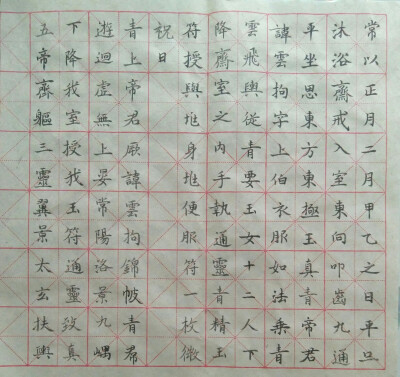 常以正月二月甲乙之日平旦
沐浴齋戒入室東向叩齒九通
平坐思東方東極玉真青帝君
諱雲拘字上伯衣服如法乘青
雲飛輿從青要玉女十二人下
降齋室之内手執通靈青精玉
符授與堆身堆便服符一枚微
祝曰
青上帝君厥諱雲拘錦帔青帬
遊迴虛無上晏常陽洛景九嵎
下降我室授我玉符通靈致真
五帝齋軀三靈翼景太玄扶輿